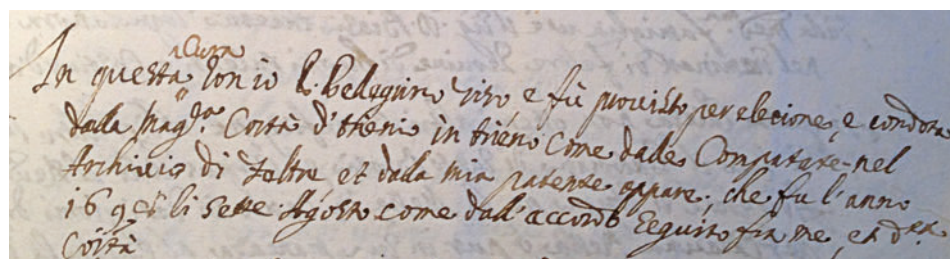 a Cura
In questa con io P. Pelegrin e fù provisto per elecione, e condotta
dalla Mag.ca Cortà d' in come dalle Comparare nel
Archivio di Foltre et dalla mia patente appare, che fu l'anno
li sette Agosto come dall'accordo seguito fra me, et d.ta
Cortà